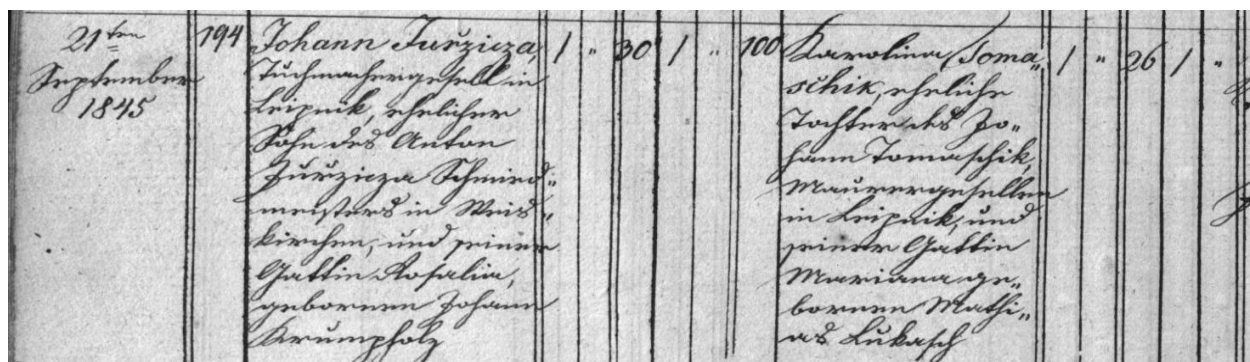 21ten
September
1845
194
Johann Juržicza,
Tuchmachergesell in
Leipnik, ehelicher
Sohn des Anton
Juržicza Schmied-
meisters in Weis-
kirchen, und seiner
Gattin Rosalia,
gebornen Johann
Krumpholz
/ " 30 / "
100
Karolina Toma-
schik, eheliche
Tochter des Jo-
hann Tomaschik,
Maurergesellen
in Leipnik, und
seiner Gattin
Mariana ge-
bornen Mathi-
as Lukasch
/ " 26 / "